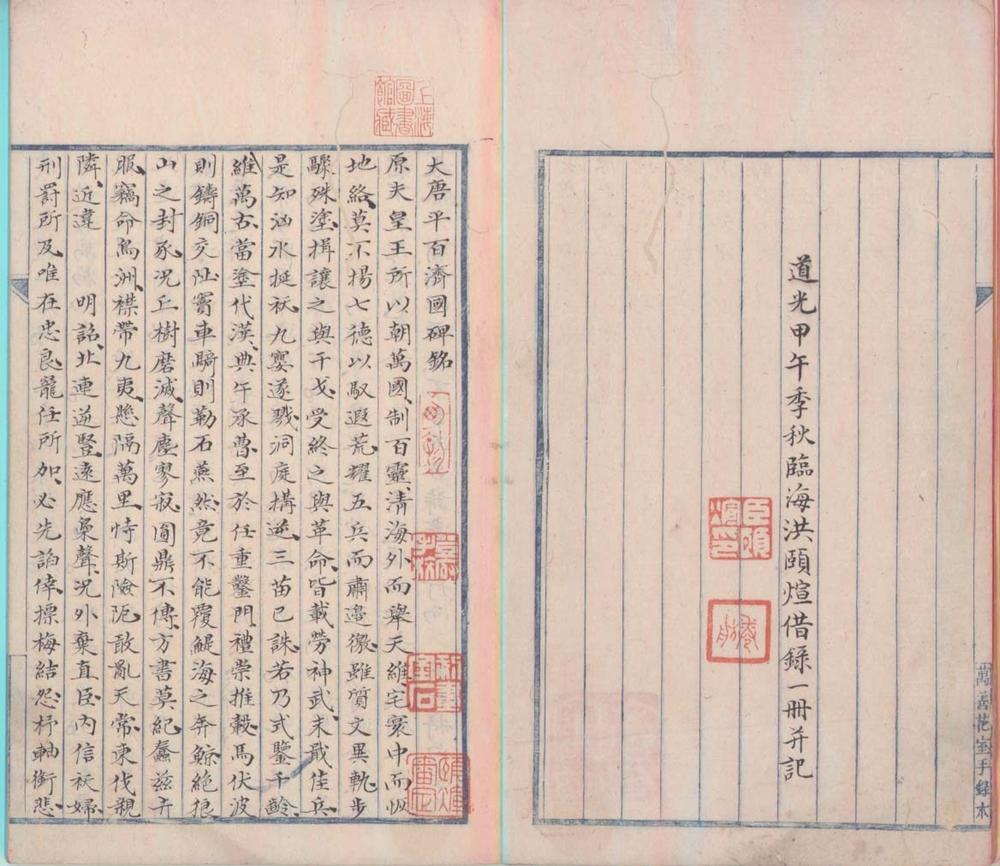 道光甲午季秋臨海洪頤煊借錄一冊并記
萬善花室手錄本
上海圖書館藏
大唐平百濟國碑銘
原夫皇王所以朝萬國制百靈清海外而舉天維宅寰中而恢
地絡莫不揚七德以馭遐荒耀五兵而肅邊徼雖質文異軌步
驟殊塗揖讓之與干戈受終之與革命皆載勞神武未戢佳兵
是知汹水挺祅九嬰遂戮洞庭搆逆三苗已誅若乃式鑒千齡
維萬古當塗代漢典午承曹至於任重鑿門禮崇推轂馬伏波
則鑄銅交阯竇車騎則勒石燕然竟不能覆鯷海之奔鯨絕狼
山之封豕况丘樹磨滅聲塵寥寂圓鼎不傳方書莫紀蠢茲卉
服竊命鳥洲襟帶九夷懸隔萬里恃斯險阨敢亂天常東伐親
隣近違 明詔北連逆豎遠應梟聲况外棄直臣內信祅婦
刑罸所及唯在忠良寵任所加必先諂倖摽梅結怨杼軸銜悲